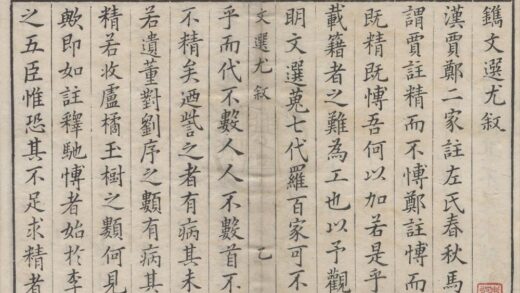 鐫文選尤敘
漢賈鄭二家註左氏春秋馬
謂賈註精而不博鄭註博而
既精既博吾何以加若是乎
載籍者之難為工也以予觀
明文選蒐七代羅百家可不
文選尤叙
乙
乎而代不數人人不數首不
不精矣迺訾之者有病其未
若遺董對劉序之類有病其
精若收盧橘玉樹之類何見
歟即如註釋馳博者始於李
之五臣惟恐其不足求精者